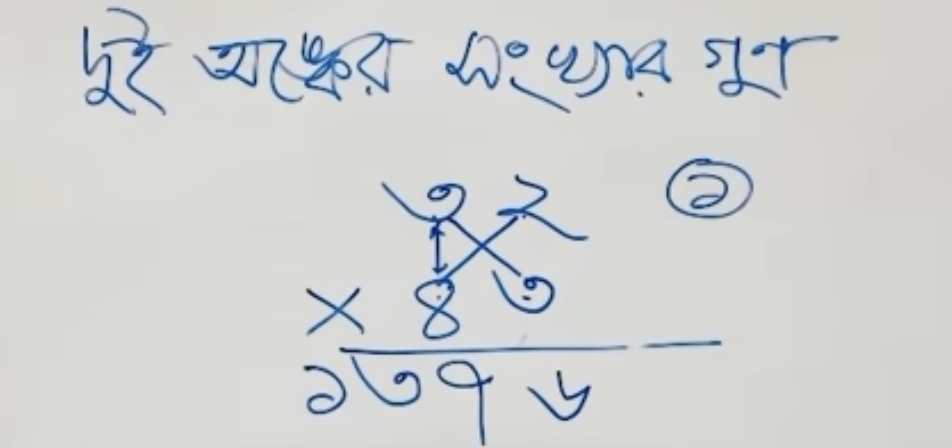 দুই অঙ্কের সংখ্যার গুণ
৩ ২ ১
× ৪ ৩
১৩৭৬